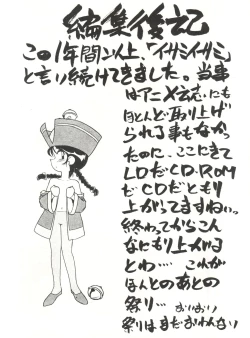 編集後記
この1年間ン以上、「イサミイサミ」
と言い続けてきました。当事
はアニメ雑誌にも
ほとんど取り上げ
られる事もなかっ
たのに、ここにきて
LDだCD-ROM
だCDだともり
上がってますねぃ。
終わってからこん
なにもり上がる
とわ… これが
ほんとのあとの
祭り… おいおい
祭りはまだおわんない